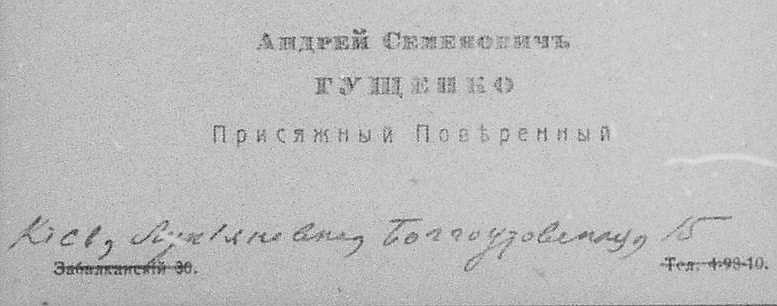 Андрей Семеновичъ
Гущенко
Присяжный Повѣренный
Кіевъ, Лукіяновка, Боггоутовская, 15
Забалканскій 30.
Тел. 4-93-10.